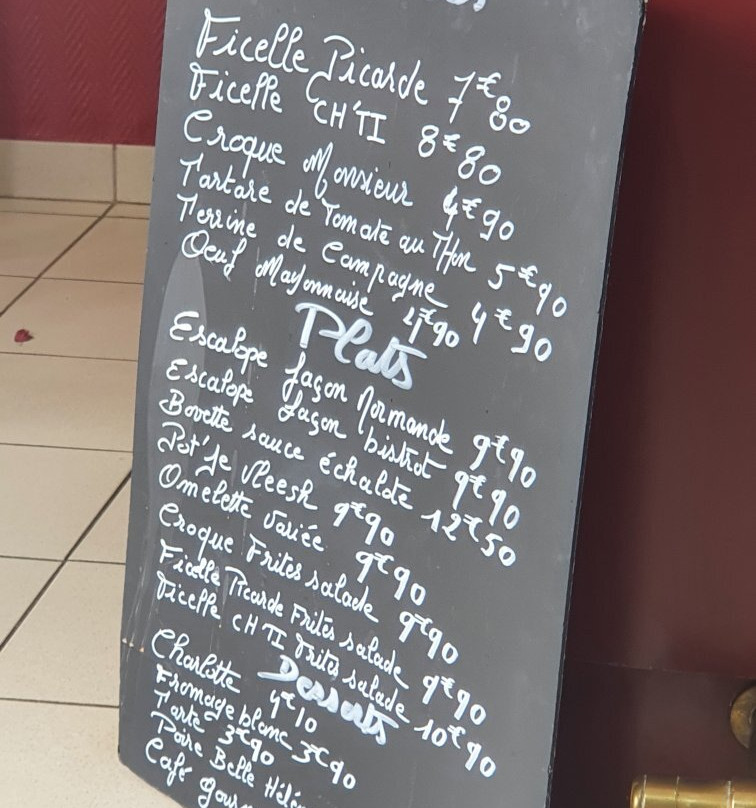 Ficelle Picarde 7€80
Ficelle CH'TI 8€80
Croque Monsieur 4€90
Tartare de Tomate au THon 5€90
Terrine de Campagne 4€90
Oeuf Mayonnaise 4€90
Plats
Escalope façon Normande 9€90
Escalope façon bistrot 9€90
Bavette sauce échalote 12€50
Pot'je vleesh 9€90
Omelette variée 9€90
Croque Frites salade 9€90
Ficelle Picarde Frites salade 9€90
Ficelle CH'TI Frites salade 10€90
Desserts
Charlotte 4€10
Fromage blanc 3€90
Tarte 3€90
Poire Belle Hélèn
Café gour